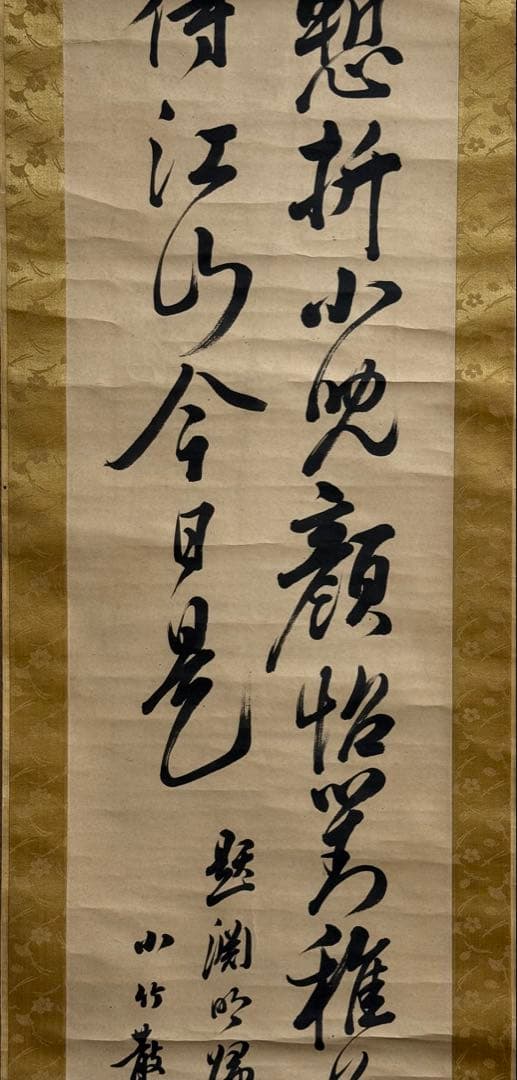 憩拚小晩顔怡對稚
侍江山今日是
題淵明帰
小竹散